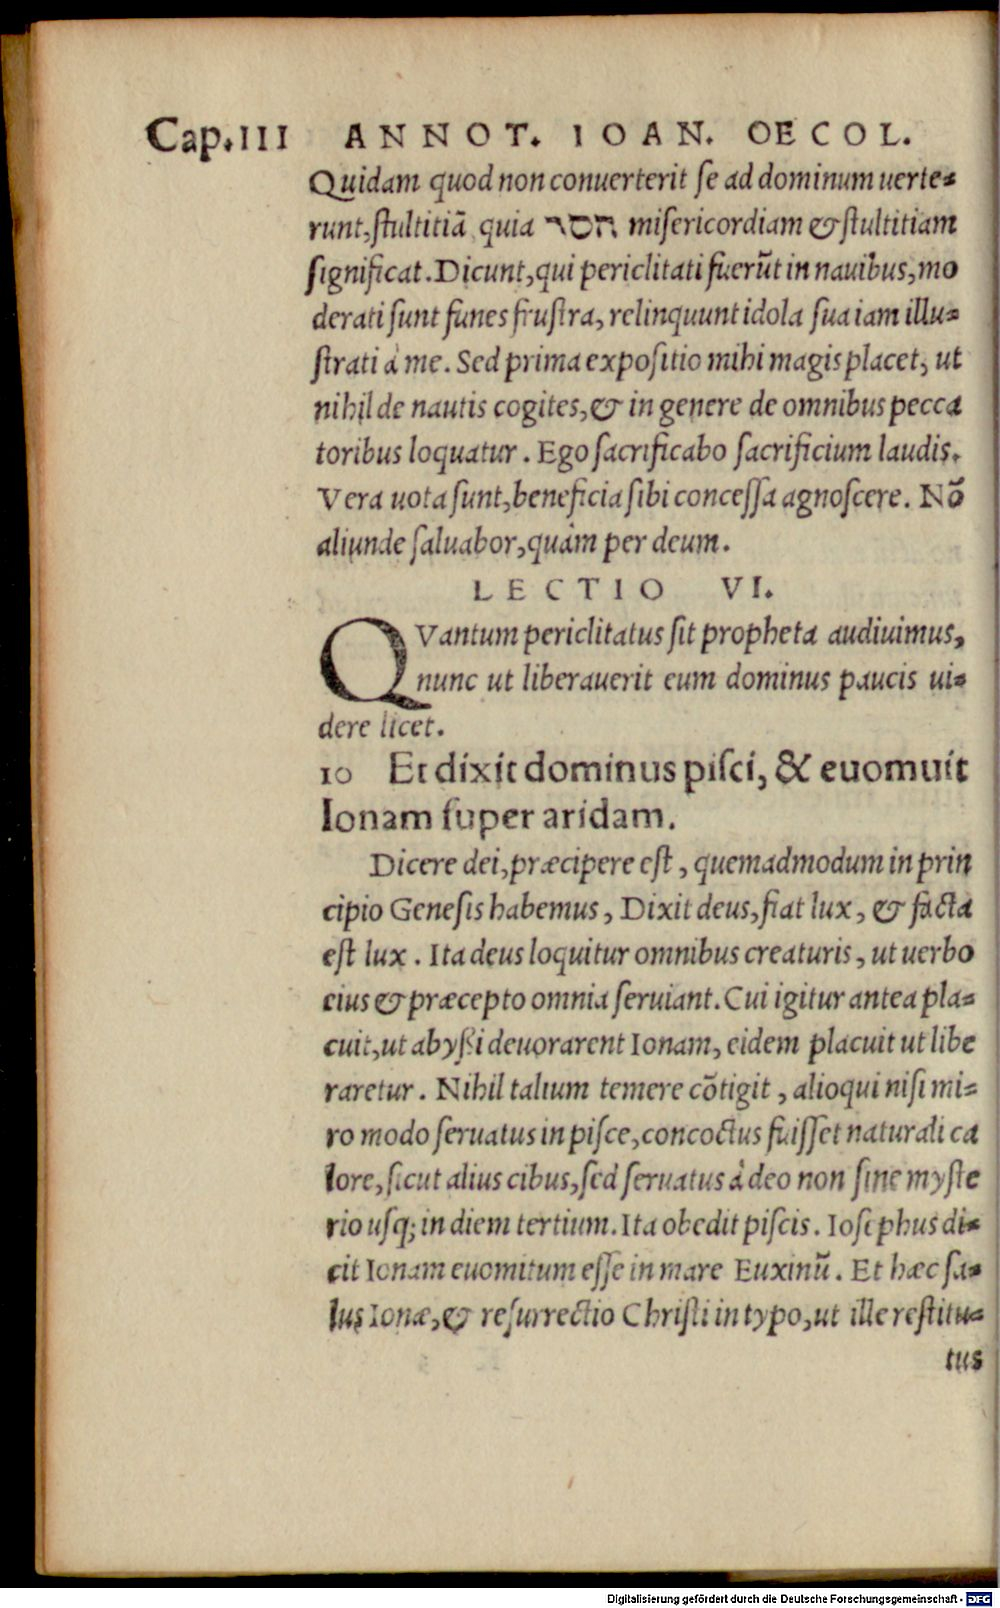 Cap.III ANNOT. IOAN. OECOL.
Quidam quod non conuerterit se ad dominum uerte-
runt, stultitiã quia חסד misericordiam & stultitiam
significat. Dicunt, qui periclitati fuerũt in nauibus, mo
derati sunt funes frustra, relinquunt idola sua iam illu-
strati à me. Sed prima expositio mihi magis placet, ut
nihil de nautis cogites, & in genere de omnibus pecca
toribus loquatur. Ego sacrificabo sacrificium laudis.
Vera uota sunt, beneficia sibi concessa agnoscere. Nõ
aliunde saluabor, quàm per deum.
LECTIO VI.
QVantum periclitatus sit propheta audiuimus,
nunc ut liberauerit eum dominus paucis ui-
dere licet.
10 Et dixit dominus pisci, & euomuit
Ionam super aridam.
Dicere dei, præcipere est, quemadmodum in prin
cipio Genesis habemus, Dixit deus, fiat lux, & facta
est lux. Ita deus loquitur omnibus creaturis, ut uerbo
eius & præcepto omnia seruiant. Cui igitur antea pla-
cuit, ut abyßi deuorarent Ionam, eidem placuit ut libe
raretur. Nihil talium temere cõtigit, alioqui nisi mi-
ro modo seruatus in pisce, concoctus fuisset naturali ca
lore, sicut alius cibus, sed seruatus à deo non sine myste
rio usq; in diem tertium. Ita obedit piscis. Iosephus di-
cit Ionam euomitum esse in mare Euxinũ. Et hæc sa-
lus Ionæ, & resurrectio Christi in typo, ut ille restitu-
tus
Digitalisierung gefördert durch die Deutsche Forschungsgemeinschaft - DFG